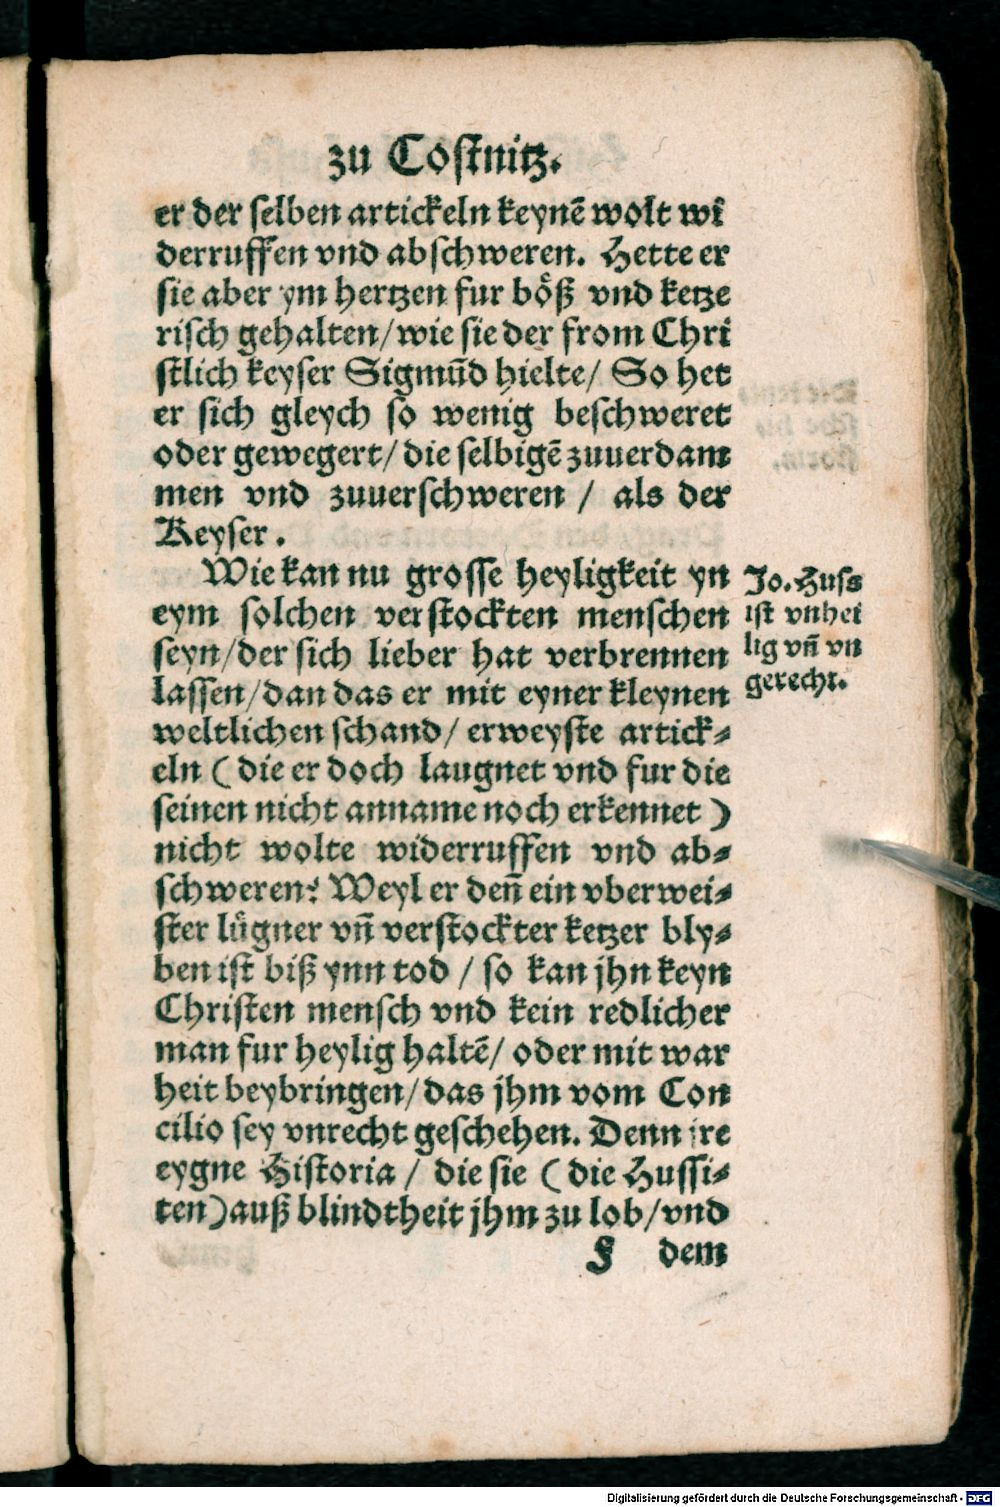 zu Costnitz.
er der selben artickeln keynē wolt wi
derruffen vnd abschweren. Hette er
sie aber ym hertzen fur böß vnd ketze
risch gehalten/wie sie der from Chri
stlich keyser Sigmūd hielte/ So het
er sich gleych so wenig beschweret
oder gewegert/die selbigē zuuerdam
men vnd zuuerschweren / als der
Keyser.
Wie kan nu grosse heyligkeit yn
eym solchen verstockten menschen
seyn/der sich lieber hat verbrennen
lassen/dan das er mit eyner kleynen
weltlichen schand/ erweyste artick-
eln (die er doch laugnet vnd fur die
seinen nicht anname noch erkennet)
nicht wolte widerruffen vnd ab-
schweren? Weyl er deñ ein vberwei-
ster lügner vñ verstockter ketzer bly-
ben ist biß ynn tod / so kan jhn keyn
Christen mensch vnd kein redlicher
man fur heylig haltē/ oder mit war
heit beybringen/das jhm vom Con
cilio sey vnrecht geschehen. Denn jre
eygne Historia / die sie (die Hussi-
ten)auß blindtheit jhm zu lob/vnd
§ dem
Jo. Huss
ist vnhei
lig vñ vn
gerecht.
Digitalisierung gefördert durch die Deutsche Forschungsgemeinschaft - DFG